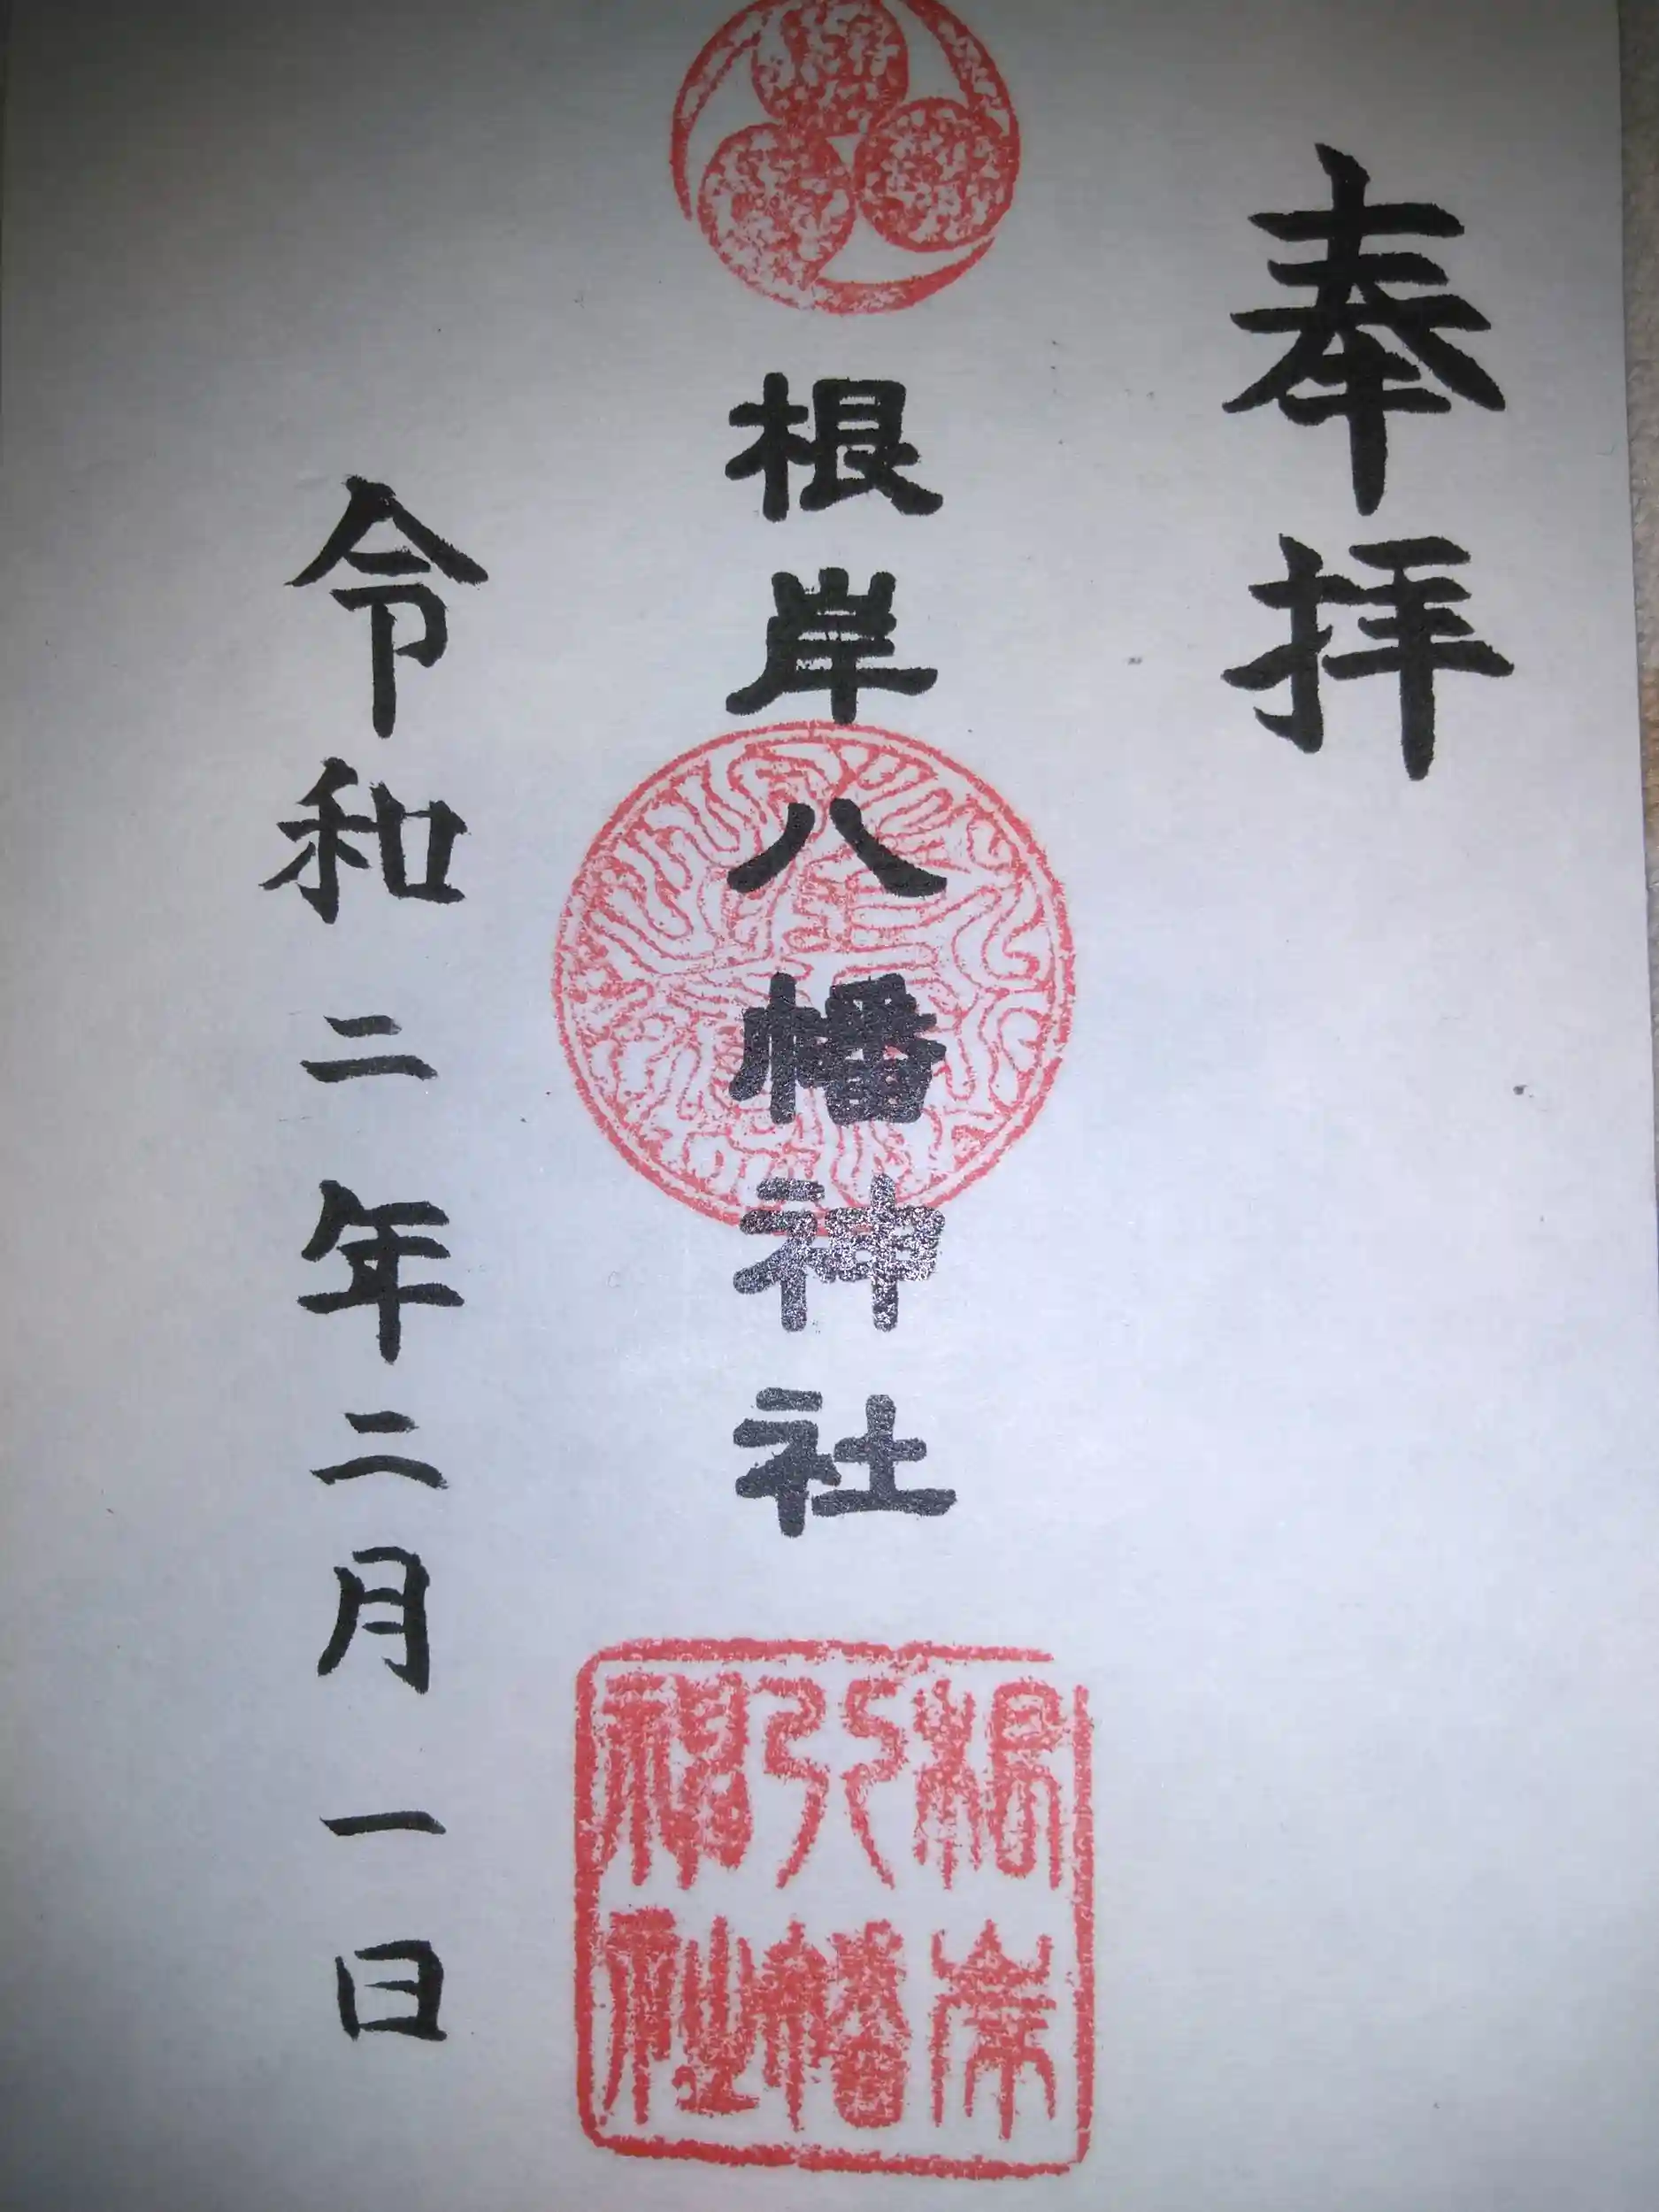 奉拝
根岸八幡神社
令和二年二月一日
根岸
八幡
神社